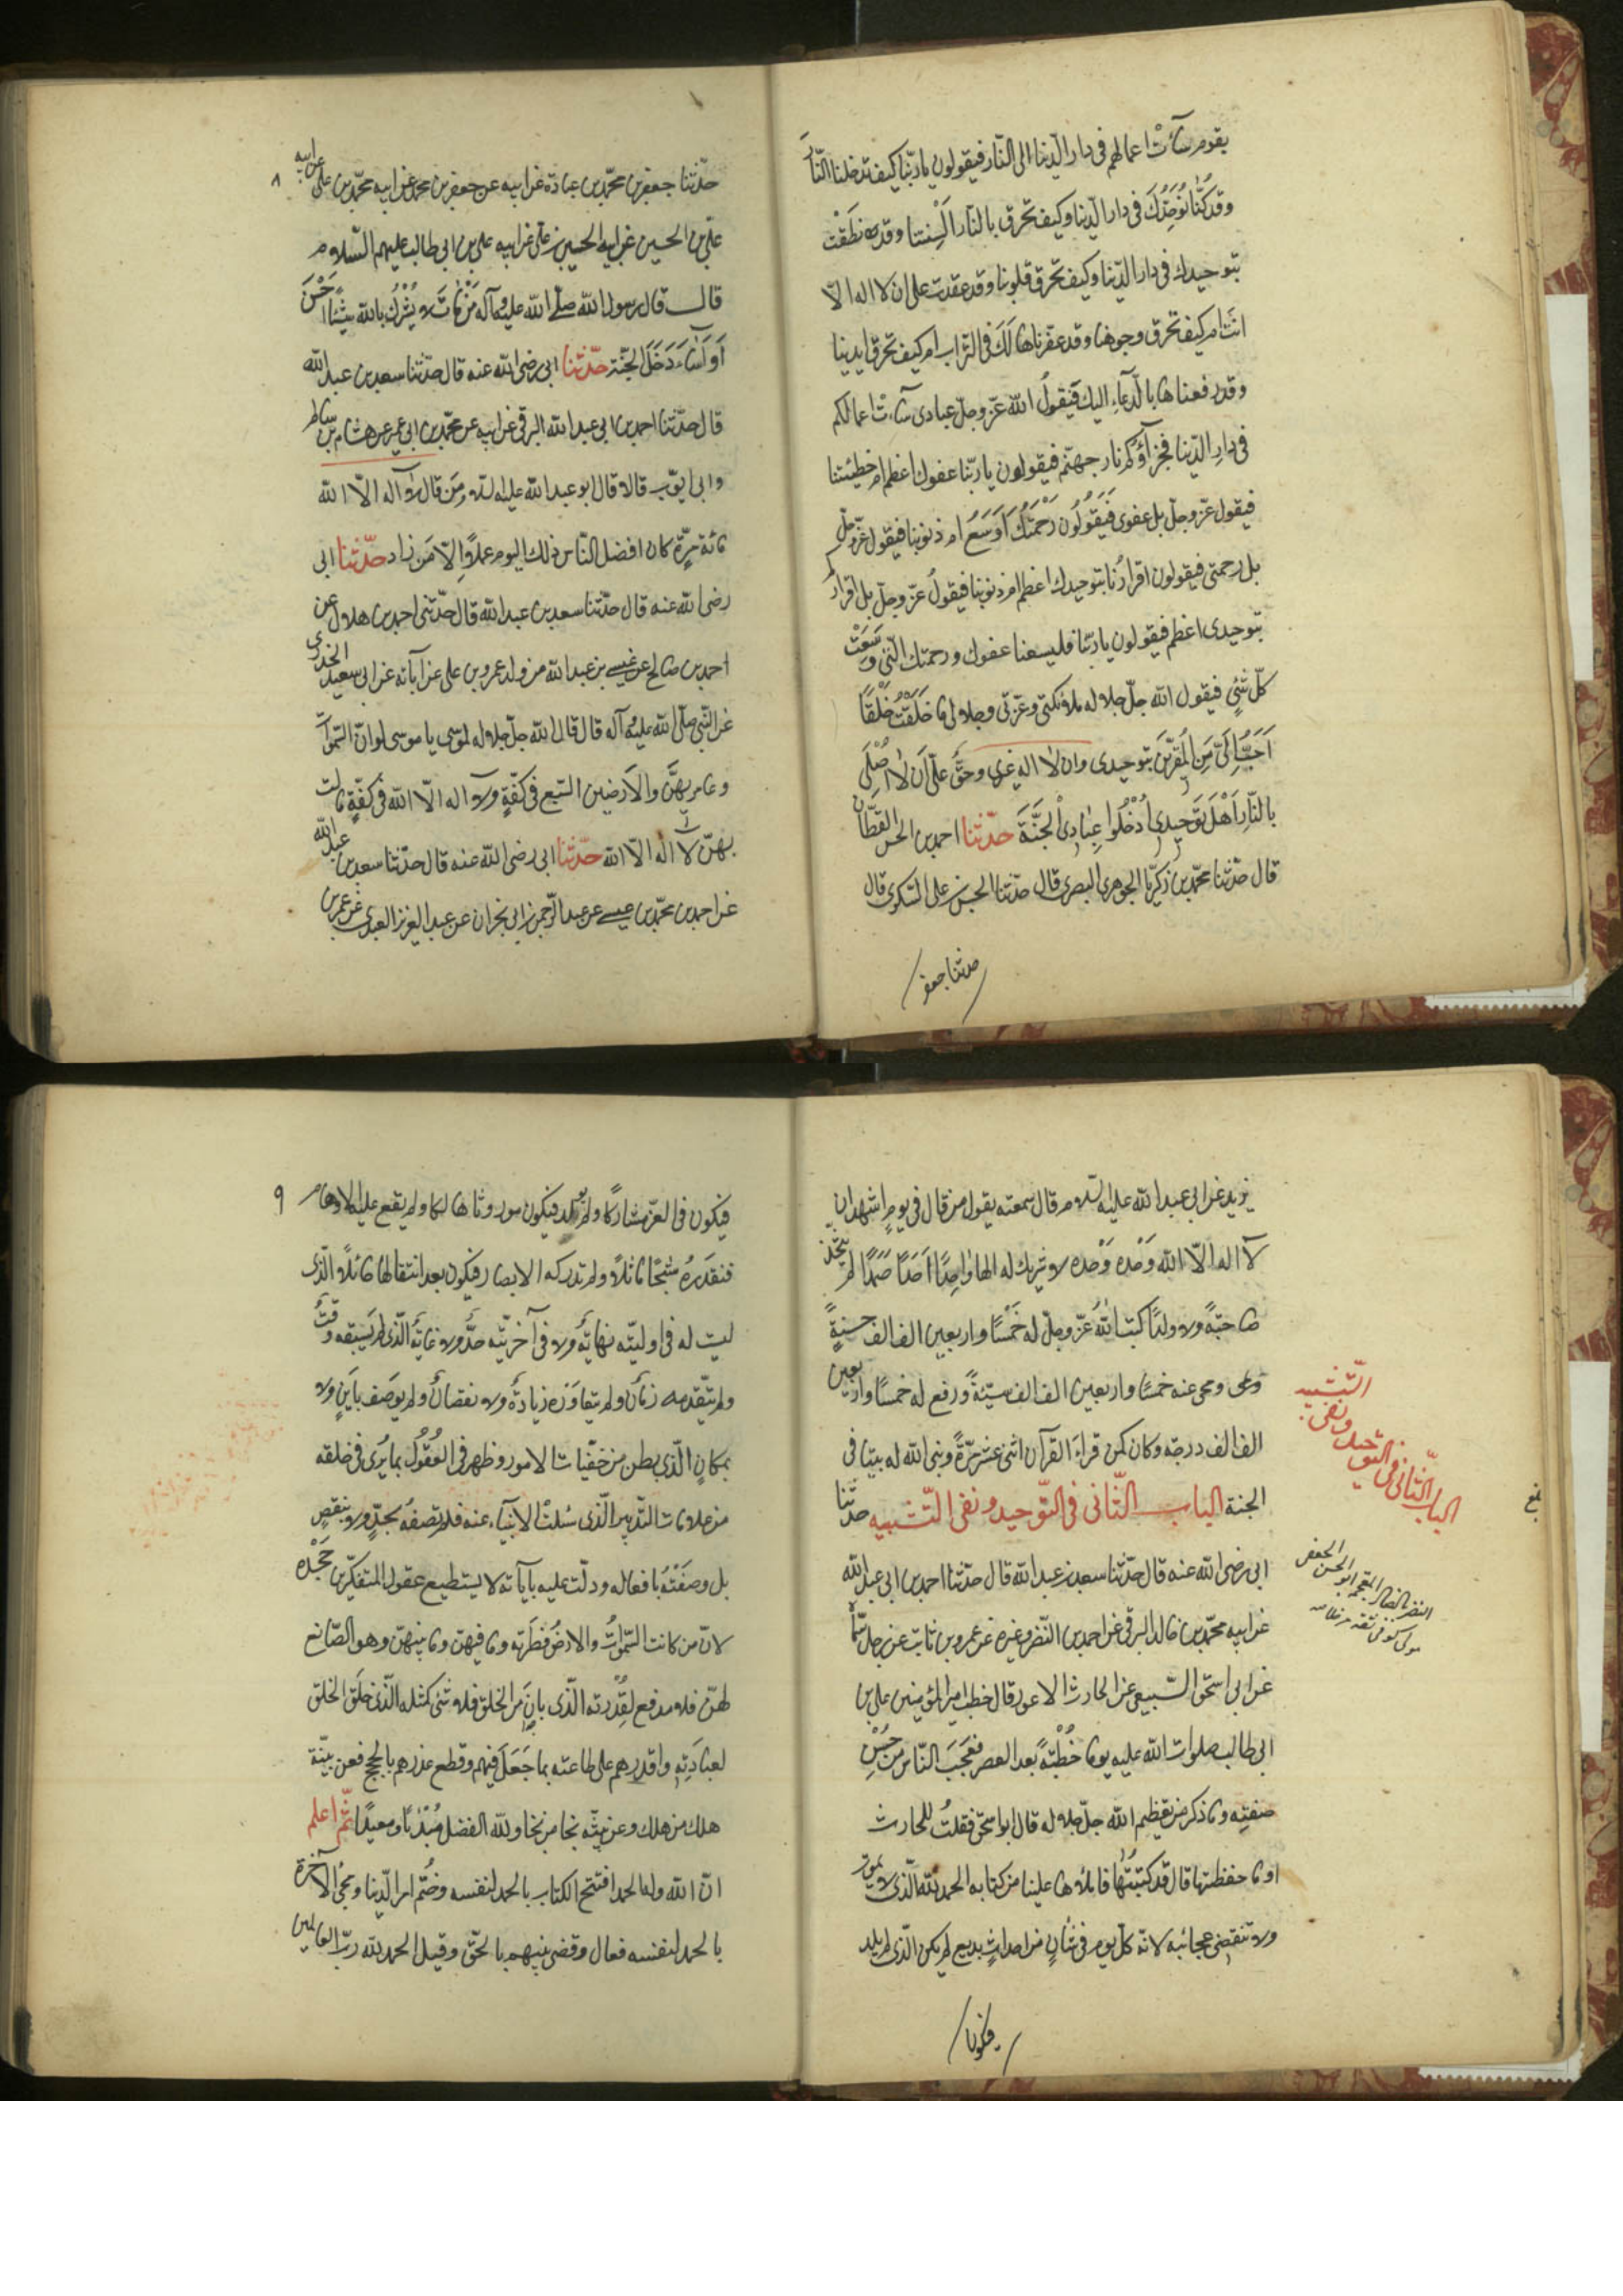 بقوم ساءَتْ اعمالهم فى دار الدّنيا الى النّار فيقولون يا ربّنا كيف تدخلنا النّار
وقد كنّا نُوَحِّدُكَ فى دار الدّنيا وكيف تحرق بالنّار اَلْسِنتنا وقد نَطَقْت
بتوحيدك فى دار الدّنيا وكيف تحرق قلوبنا وقد عقدت على ان لا اله الّا
انتَ ام كيف تحرق وجوهنا وقد عفّرناها لَكَ فى التّراب ام كيف تحرق ايدينا
وقد رفعناها بالدّعاءِ اليك فَيَقولُ الله عزّ وجلّ عبادى ساءتْ اعمالكم
فى دارِ الدّنيا فجزآؤكم نار جهنّم فيقولون يا ربّنا عفوك اعظم ام خطيئتنا
فيقول عزّ وجلّ بل عفوى فَيَقُولُون رَحْمَتُكَ اَوْسَعُ ام ذنوبنا فيقول عزّ وجلّ
بل رحمتى فيقولون اقرارُنا بتوحيدك اعظم ام ذنوبنا فيقولُ عزّ وجلّ بل اقراركم
بتوحيدى اعظم فيقولون يا ربّنا فليسعنا عفوك ورحمتك الّتى وَسَعَتْ
كلّ شئٍ فيقول الله جلّ جلاله ملائكتى وعزّتى وجلالى ما خَلَقْتُ خَلْقًا
اَحَبَّ اِلَىَّ مِنَ الْمُقرّين بتوحيدى وان لا اله غيرى وحقّ علىّ اَن لا اُصْلِىَ
بالنّارِ اَهْلَ تَوحيدى اُدْخُلُوا عِبادِىَ الْجَنَّةَ حدّثنا احمد بن الحسن القطّان
قال حدّثنا محمّد بن زكريّا الجوهرى البصرى قال حدّثنا الحسن بن على السّكرى قال
حدثنا جعفر
٨
حدّثنا جعفر بن محمّد بن عمارة عن ابيه عن جعفر بن محمد عن ابيه محمّد بن على عن ابيه
علىّ بن الحسين عن ابيه الحسين بن علىّ عن ابيه على بن ابى طالب عليهم السّلام
قال قال رسول الله صلّى الله عليه وآله مَنْ مٰاتَ لا يُشْرِكُ بالله شيئًا اَحْسَنَ
اَوْ اَسٰآءَ دَخَلَ الجنّة حدّثنا ابى رضى الله عنه قال حدّثنا سعد بن عبد الله
قال حدّثنا احمد بن ابى عبد الله البرقى عن ابيه عن محمّد بن ابى عمير عن هشام بن سالم
وابى ايّوب قالا قال ابو عبد الله عليه السّلام مَن قال لا اله الّا الله
مائة مرّة كان افضل النّاس ذلك اليوم عملاً اِلّا مَن زاد حدّثنا ابى
رضى الله عنه قال حدّثنا سعد بن عبد الله قال حدّثنى احمد بن هلال عن
احمد بن صالح عن عيسى بن عبد الله من ولد عمرو بن على عن آبائه عن ابى سعيد الخدرى
عن النّبى صلّى الله عليه وآله قال قال الله جلّ جلاله لموسى يا موسى لوانّ السّموات
وعامريهنّ والاَرَضين السّبع فى كفّةٍ ولا اله الّا الله فى كفّةٍ مالت
بهنّ لا اله الّا الله حدّثنا ابى رضى الله عنه قال حدّثنا سعد بن عبد الله
عن احمد بن محمّد بن عيسى عن عبد الرّحمن بن ابى نجران عن عبد العزيز العبدى عن عمر بن
يزيد عن ابى عبد الله عليه السّلام قال سمعته يقول من قال فى يومٍ اشهد ان
لا اله الّا الله وَحْده وَحْده لا شريك له الها وٰاحِدًا اَحَدًا صَمَدًا لم يتّخذ
صاحبةً ولا ولدًا كتب اللهُ عزّ وجلّ له خَمْسًا واربعين الف الف حسنةٍ
ومحى عنه خمسًا واربعين الف الف سيّئةً ورفع له خمسًا واربعين
الف الف درجة وكان كمن قراءَ القرآن اثنى عشر مرّةً وبنى الله له بيتا فى
الجنة الباب الثّانى فى التّوحيد ونفى التّشبيه حدّثنا
ابى رضى الله عنه قال حدّثنا سعد بن عبد الله قال حدّثنا احمد بن ابى عبد الله
عن ابيه محمّد بن خالد البرقى عن احمد بن النّضر وغيره عن عمرو بن ثابت عن رجل سمّاه
عن ابى اسحق السّبيعى عن الحارث الاعور قال خطب امير المؤمنين على بن
ابى طالب صلوات الله عليه يوما خُطْبةً بعد العصر فعَجِبَ النّاس من حُسْنِ
صفتِه وما ذكر من تعظيم الله جلّ جلاله قال ابو اسحق فقلتُ للحارث
اوما حفظتها قال قد كتبتُها فاملأها علينا من كتابه الحمد لله الّذى لا يموت
ولا تنقضى عجائبه لانّه كلّ يوم فى شٰانٍ من احداثٍ بديع لم يكن الّذى لم يلد
فيكون
الباب الثّانى فى التّوحيد ونفى التّشبيه
٩
فيكون فى العزّ مشاركا ولم يولد فيكون موروثا هالكا ولم يقع عليه الاوهام
فتقدّرهُ شبحًا ماثلاً ولم تدركه الابصار فيكون بعد انتقالها حائلاً الّذى
ليست له فى اوليّته نهايةٌ ولا فى آخريّته حدٌّ ولا غايةٌ الّذى لم يَسْبِقه وقتٌ
ولم يتقدّمه زمانٌ ولم يتعاوَره زيادةٌ ولا نقصانٌ ولم يوصَف باَينٍ ولا
بمكانٍ الّذى بطن من خفيّات الامور وظهر فى العُقُول بما يُرى فى خلقه
من علامات التّدبير الّذى سُئلتْ الانبياء عنه فلم تصِفْه بحدٍّ ولا بنقصٍ
بل وصفَتْهُ بافعاله ودلّت عليه بآياته لا يستطيع عقول المتفكّرين جَحْدَه
لانّ من كانت السّمواتُ والارضُ فطرَته وما فيهنّ وما بينهنّ وهو الصّانع
لهنّ فلا مدفع لقُدْرته الّذى بانَ من الخلق فلا شئ كمثله الّذى خلَقَ الخلق
لعبادَتِه واقدرهم على طاعته بما جَعَلَ فيهم وقطع عذرهم بالحجج فعن بيّنة
هلك من هلك وعن بيّنة نجا من نجا ولله الفضل مُبْدِئًا ومعيدًا ثمّ اعلم
انّ الله وله الحمد افتتح الكتاب بالحمد لنفسه وختم امر الدّنيا ومجئ الآخرة
بالحمد لنفسه فعال وقضى بينهم بالحقّ وقيل الحمد لله ربّ العالمين